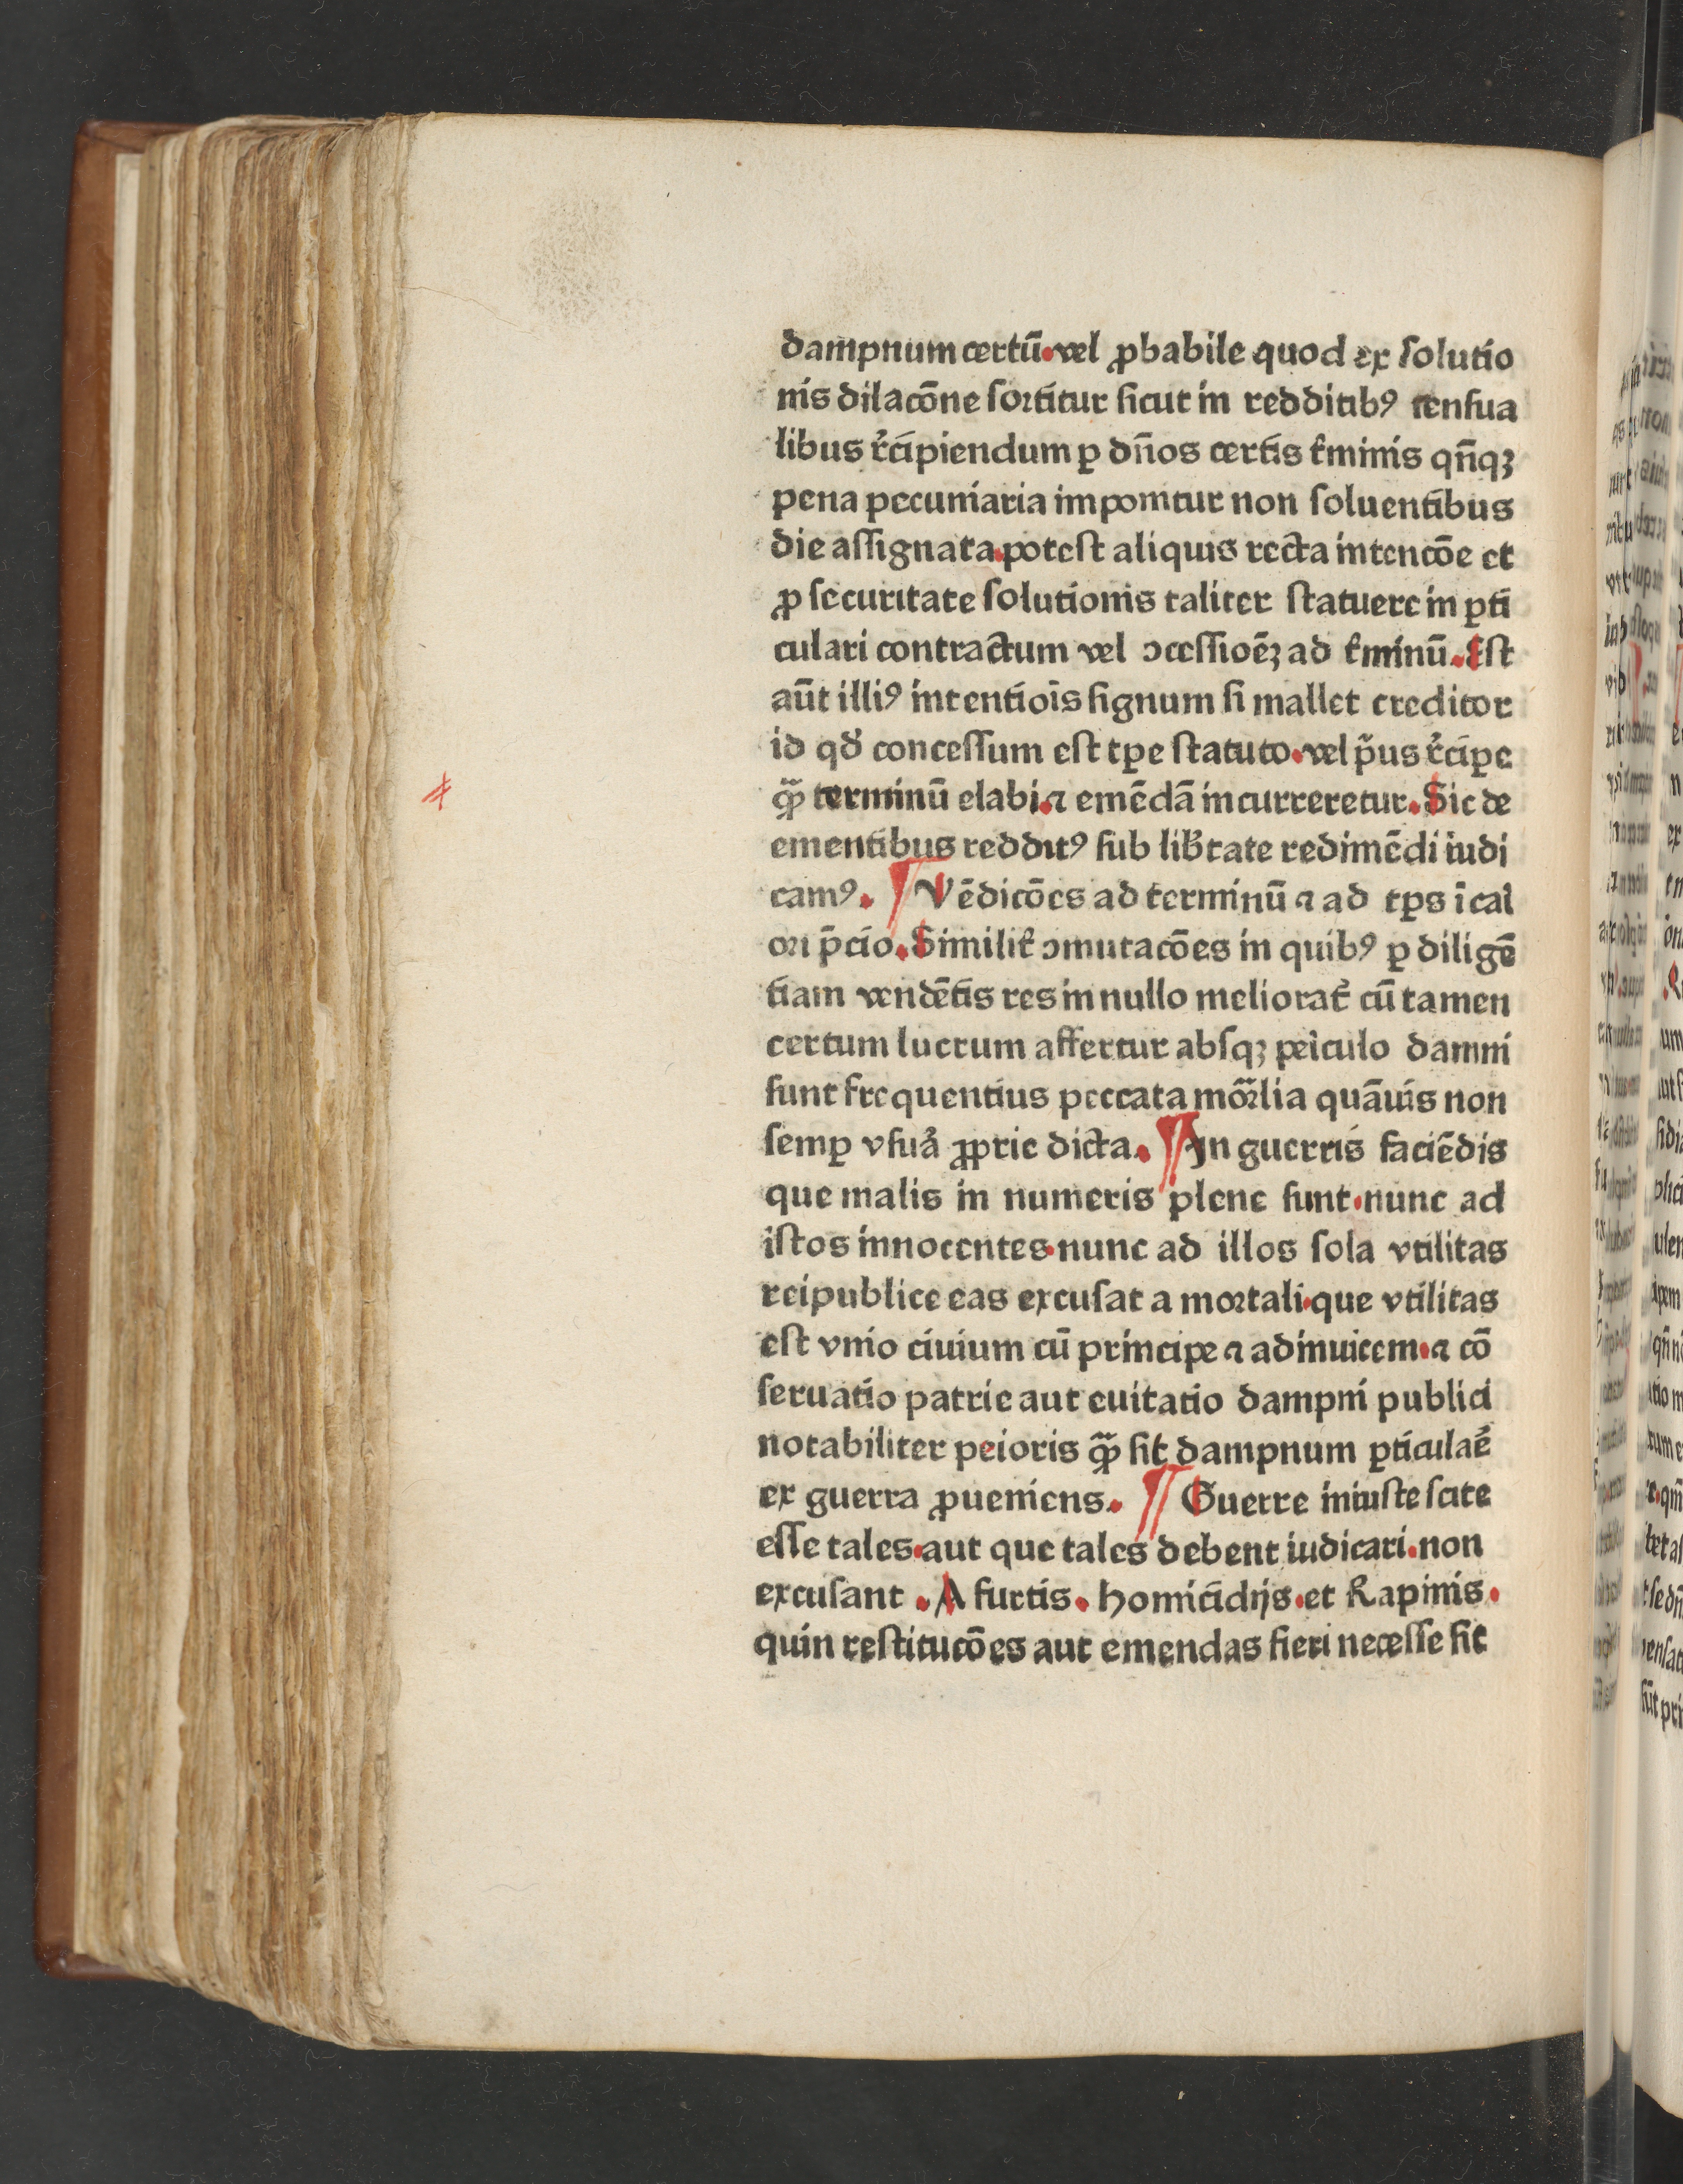 dampnum certū·vel ꝓbabile quod ex ſolutio
nis dilacōne ſortitur ſicut in redditibꝰ cenſua
libus r̉cipiendum ꝑ dn̄os certis t̉minis qn̄qꝫ
pena pecuniaria imponitur non ſoluentibus
die aſſignata·poteſt aliquis recta intencōe et
ꝓ ſecuritate ſolutionis taliter ſtatuere in ꝑti
culari contractum vel ↄceſſioēꝫ ad t̉minū. Eſt
aūt illiꝰ intentiois̄ ſignum ſi mallet creditor
id qđ conceſſum eſt tꝑe ſtatuto·vel p̄us r̉cipe
qꝫ̃ terminū elabi·⁊ emēdā incurreretur. Sic de
ementibus redditꝰ ſub lib̉tate redimēdi iudi
camꝰ. ¶ Vēdicōes ad terminū ⁊ ad tꝑs ī cal
ori p̄cio. Similit̉ ↄmutacōes in quibꝰ ꝑ diligē
tiam vendētis res in nullo meliorat̉ cū tamen
certum lucrum affertur abſqꝫ peĩculo damni
ſunt frequentius peccata mor̃lia quāuis non
ſemꝑ vſura̾ ꝓprie dicta. ¶ In guerris faciēdis
que malis in numeris plene ſunt·nunc ad
iſtos innocentes·nunc ad illos ſola vtilitas
reipublice eas excuſat a mortali·que vtilitas
eſt vnio ciuium cū principe ⁊ adinuicem·⁊ cō
ſeruatio patrie aut euitatio dampni publici
notabiliter peioris qꝫ̃ ſit dampnum ꝑticulae̾
ex guerra ꝓueniens. ¶ Guerre iniuſte ſcite
eſſe tales·aut que tales debent iudicari·non
excuſant . A furtis. homicidijs·et Rapinis·
quin reſtitucōes aut emendas fieri neceſſe ſit